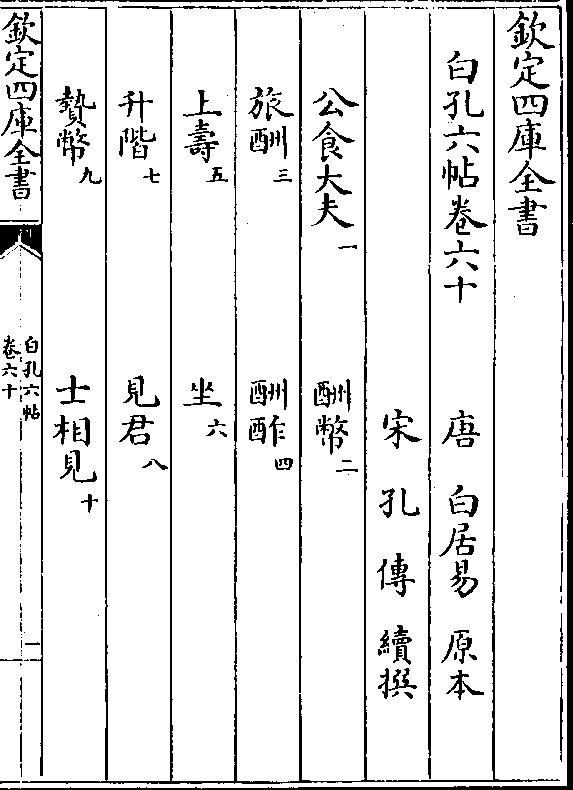 欽定四庫全書
白孔六帖卷六十
唐 白居易 原本
宋 孔傳 續撰
公食大夫一 酬幣二
旅酬三 酬酢四
上壽五 坐六
升階七 見君八
贄幣九 士相見十
欽定四庫全書
白孔六帖
卷六十
一